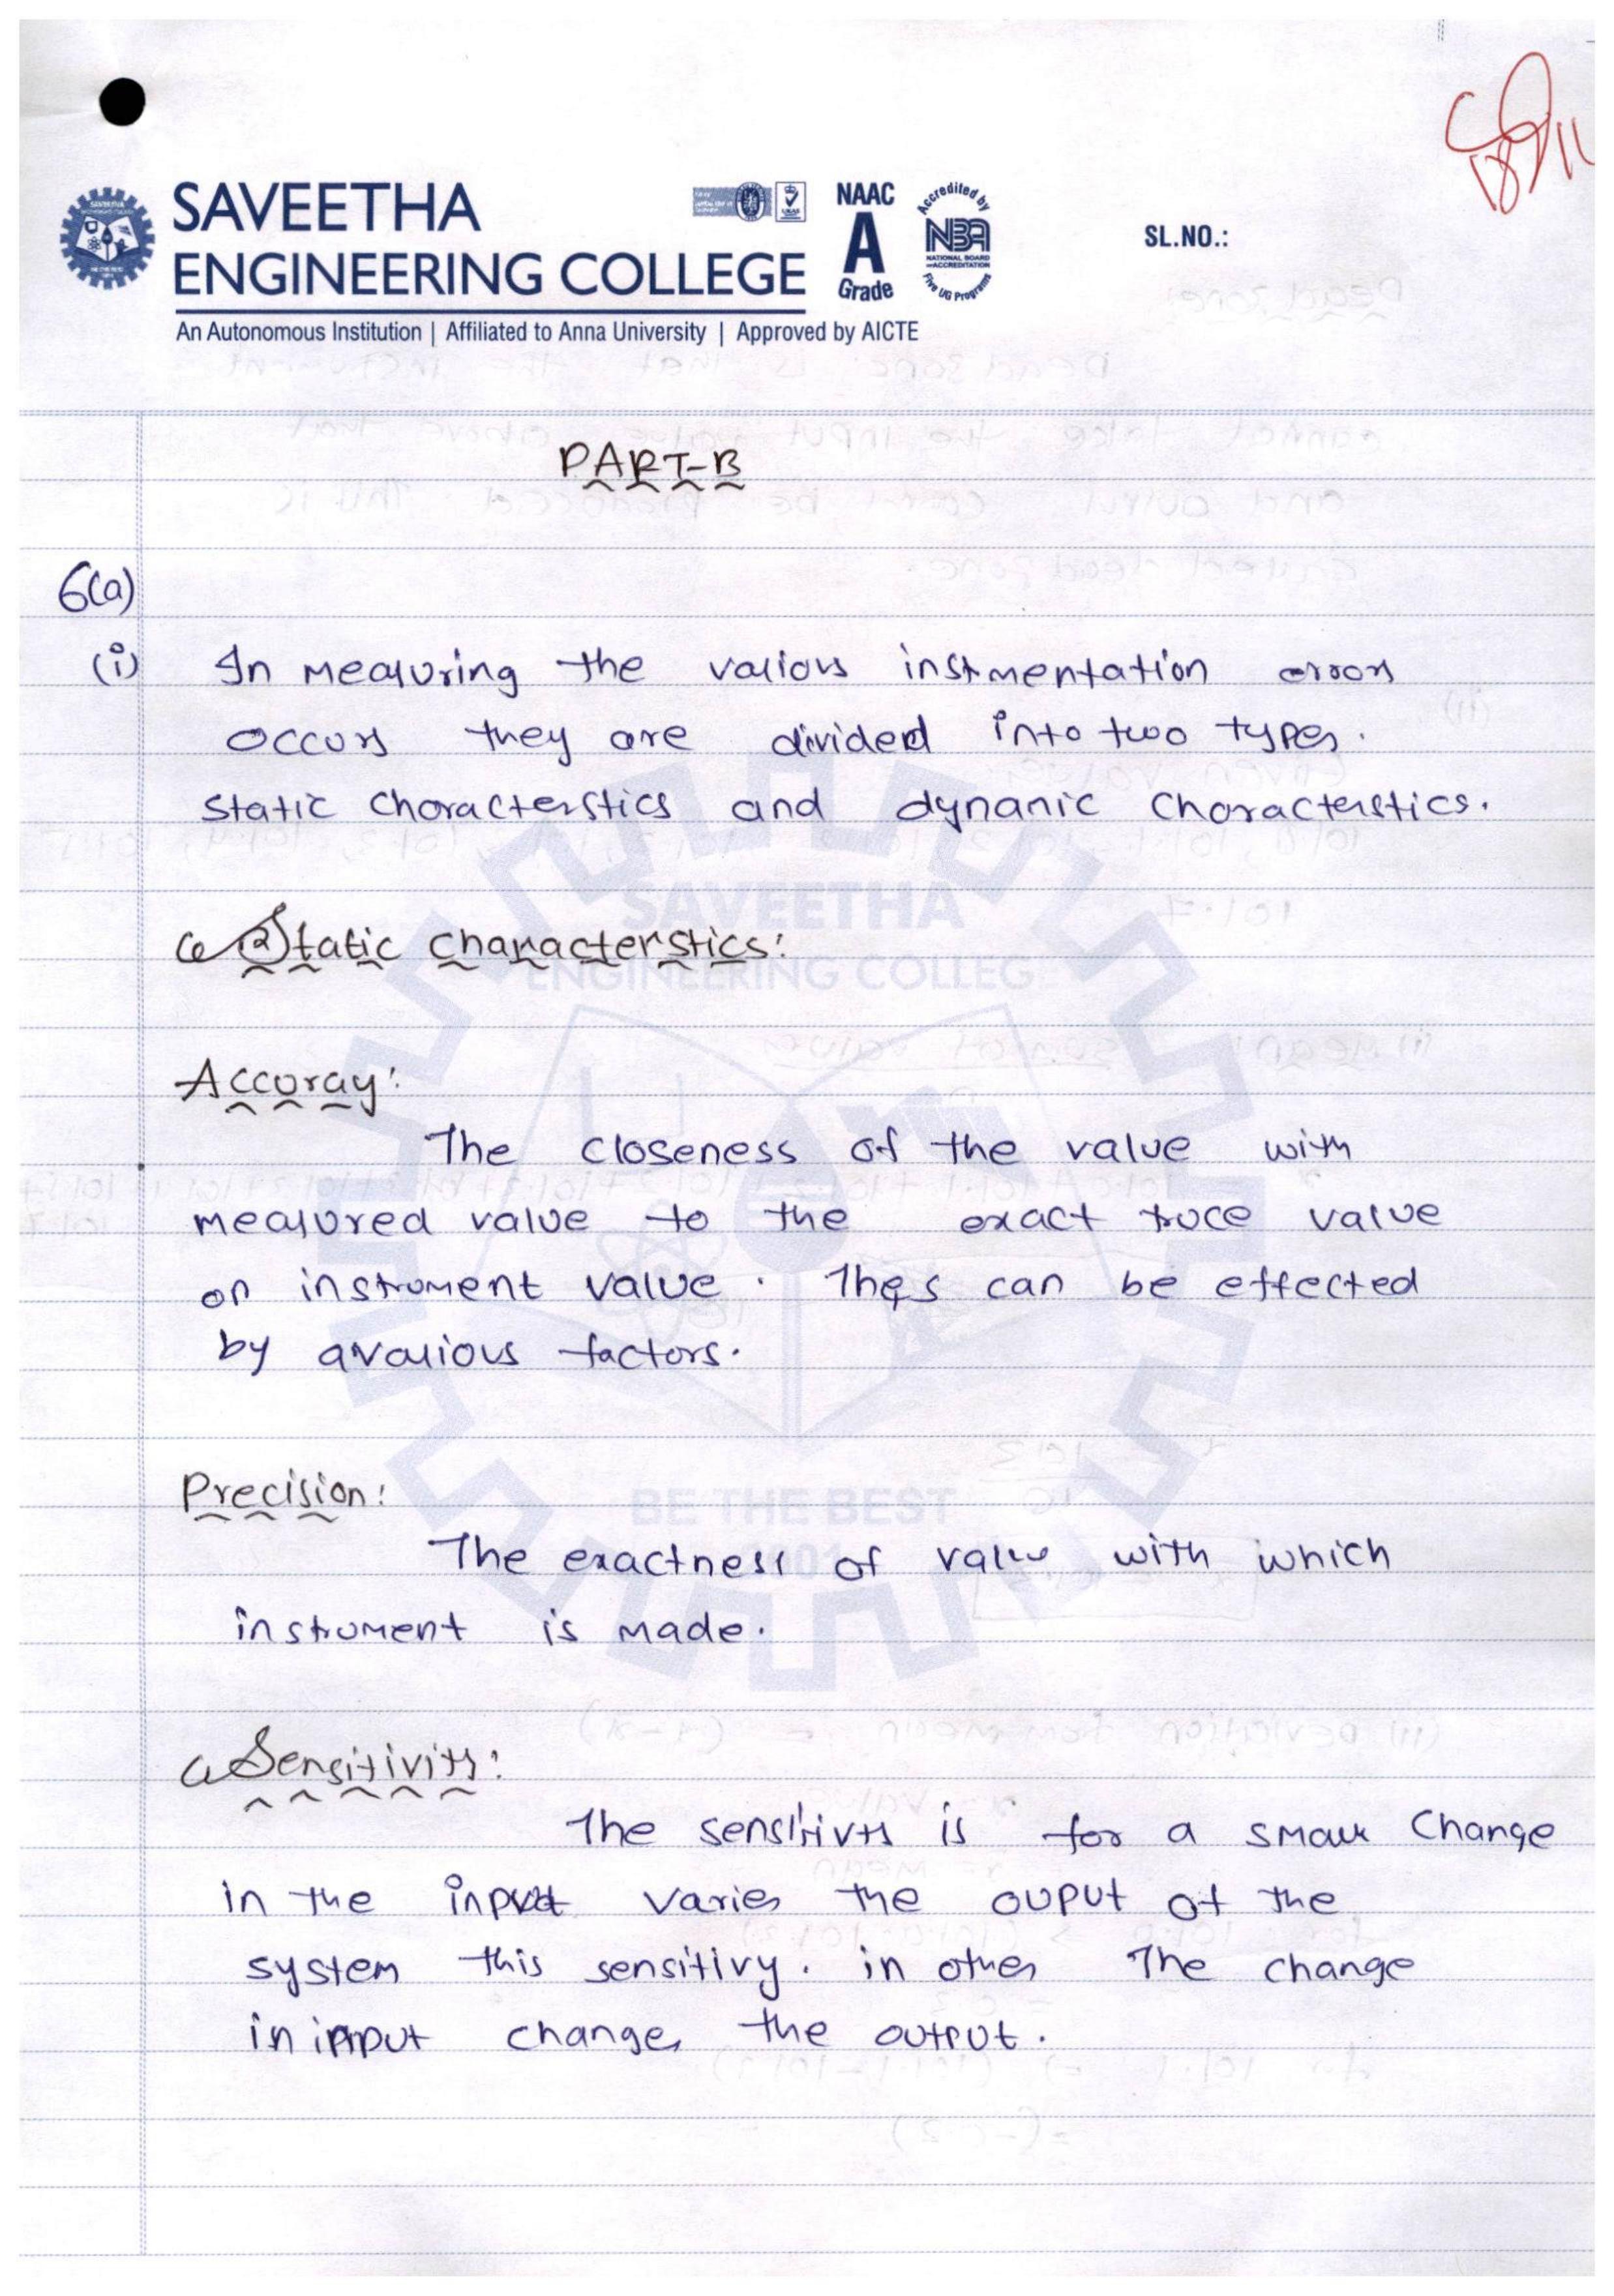 SAVEETHA
ENGINEERING COLLEGE
An Autonomous Institution | Affiliated to Anna University | Approved by AICTE
NAAC
A
Grade
Accredited by
NBA
NATIONAL BOARD
of ACCREDITATION
Five UG Programs
SL.NO.:
PART-B
6(a)
(i) In measuring the various instmentation errors
occurs they are divided into two types.
static choracterstics and dynanic Choracterstics.
Static characterstics:
Accuray:
The closeness of the value with
measured value to the exact truce value
on instrument value. Thes can be effected
by avarious factors.
Precision:
The exactness of value with which
instrument is made.
Sensitivity:
The sensitivty is for a small Change
in the input varies the ouput of the
system this sensitivy. in other The change
in input changes the output.
SAVEETHA
ENGINEERING COLLEGE
BE THE BEST
2001